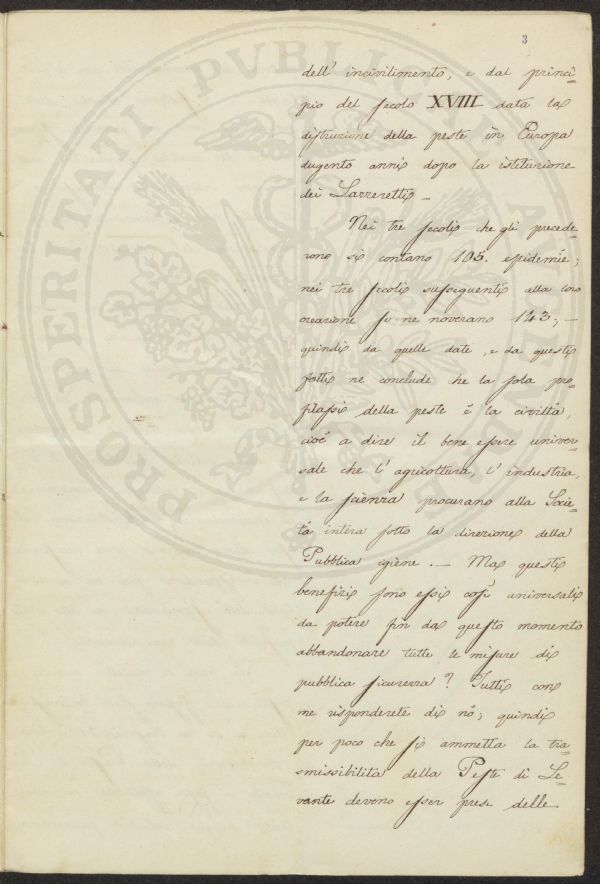 3
dell' incivilimento, e dal princi=
pio del secolo XVIII data la
distruzione della peste in Europa
dugento anni dopo la istituzione
dei Lazzeretti –
Nei tre secoli che gli precede=
rono si contano 105. epidemie;
nei tre secoli susseguenti alla loro
creazione se ne noverano 143; –
quindi da quelle date, e da questi
fatti ne conclude che la sola pro=
filassi della peste è la civiltà,
cioè a dire il bene essere univer=
sale che l' agricoltura, l' industria,
e la scienza procurano alla Socie=
tà intera sotto la direzione della
Pubblica igiene. – Ma questi
benefizi sono essi così universali
da potere fin da questo momento
abbandonare tutte le misure di
pubblica sicurezza? Tutti con
me risponderete di nò; quindi
per poco che si ammetta la tra=
smissibilità della Peste di Le=
vante devono esser prese delle
PROSPERITATI PUBLICAE